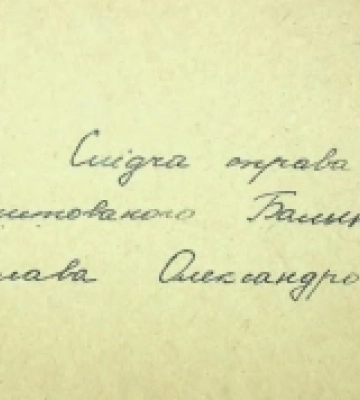 Слідча справа
штованого Балиц
лава Олександро